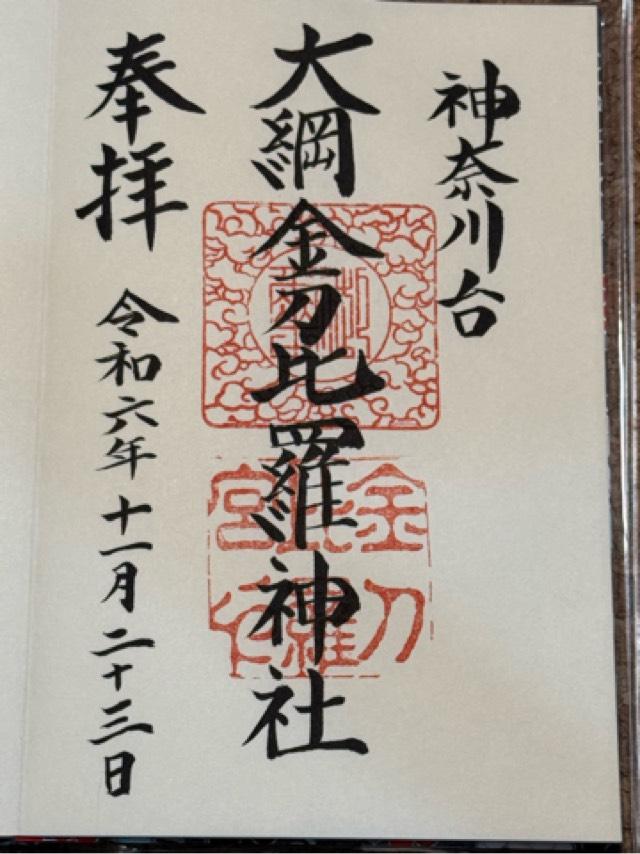 神奈川台
大綱金刀比羅神社
奉拝
令和六年十一月二十三日
金刀
比羅
宮